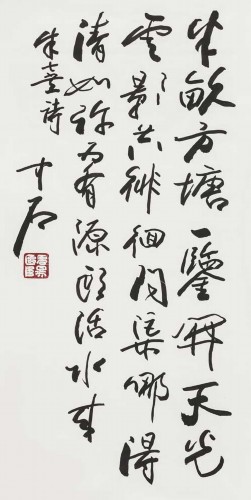 半畝方塘一鑒開天光
雲影共徘徊问渠哪得
清如許为有源頭活水来
朱熹詩
中石